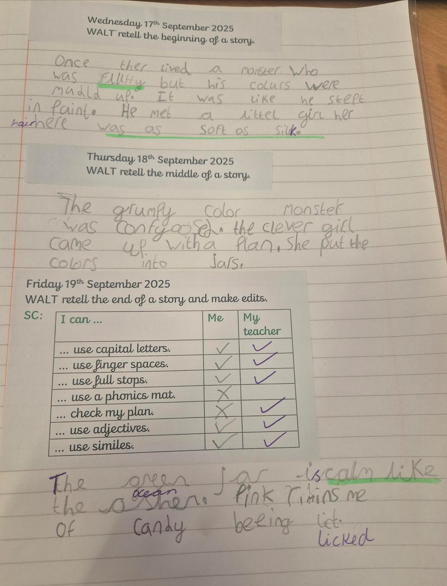 Wednesday 17th September 2025
WALT retell the beginning of a story.
Once ther lived a monster who
was Fllffy but his colurs were
mudld up. It was like he slept
in Paint. He met a littel girl her
hair
here was as soft as silk.
Thursday 18th September 2025
WALT retell the middle of a story.
The grumpy color monster
was confyoosed. the clever girl
came up with a Plan. She put the
colors into Jars.
Friday 19th September 2025
WALT retell the end of a story and make edits.
SC: I can ... Me My teacher
... use capital letters. ✓ ✓
... use finger spaces. ✓ ✓
... use full stops. ✓ ✓
... use a phonics mat. X
... check my plan. X ✓
... use adjectives. ✓ ✓
... use similes. ✓ ✓
The green Jar is calm like
ocean
the oshen. Pink rimins me
of Candy beeing lict.
licked